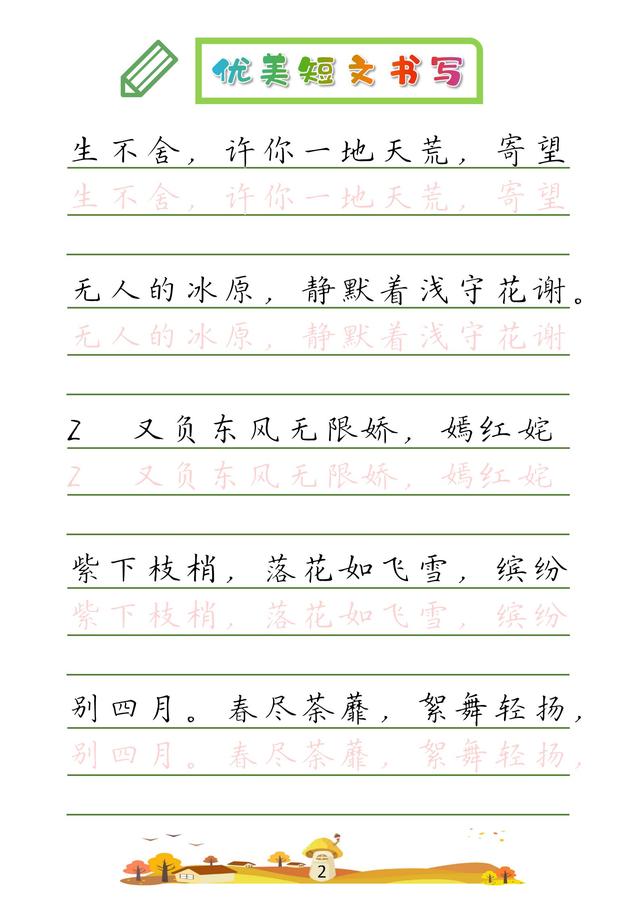 优美短文书写
生不舍，许你一地天荒，寄望
生不舍，许你一地天荒，寄望
无人的冰原，静默着浅守花谢。
无人的冰原，静默着浅守花谢
2 又负东风无限娇，嫣红姹
2 又负东风无限娇，嫣红姹
紫下枝梢，落花如飞雪，缤纷
紫下枝梢，落花如飞雪，缤纷
别四月。春尽荼蘼，絮舞轻扬，
别四月。春尽荼蘼，絮舞轻扬，
2